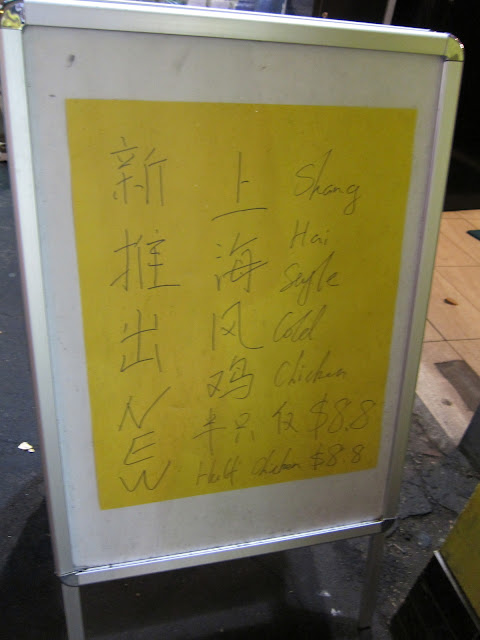 新推出
NEW
上海风鸡
Shang
Hai
Style
Cold
Chicken
半只 仅 $8.8
Half Chicken $8.8